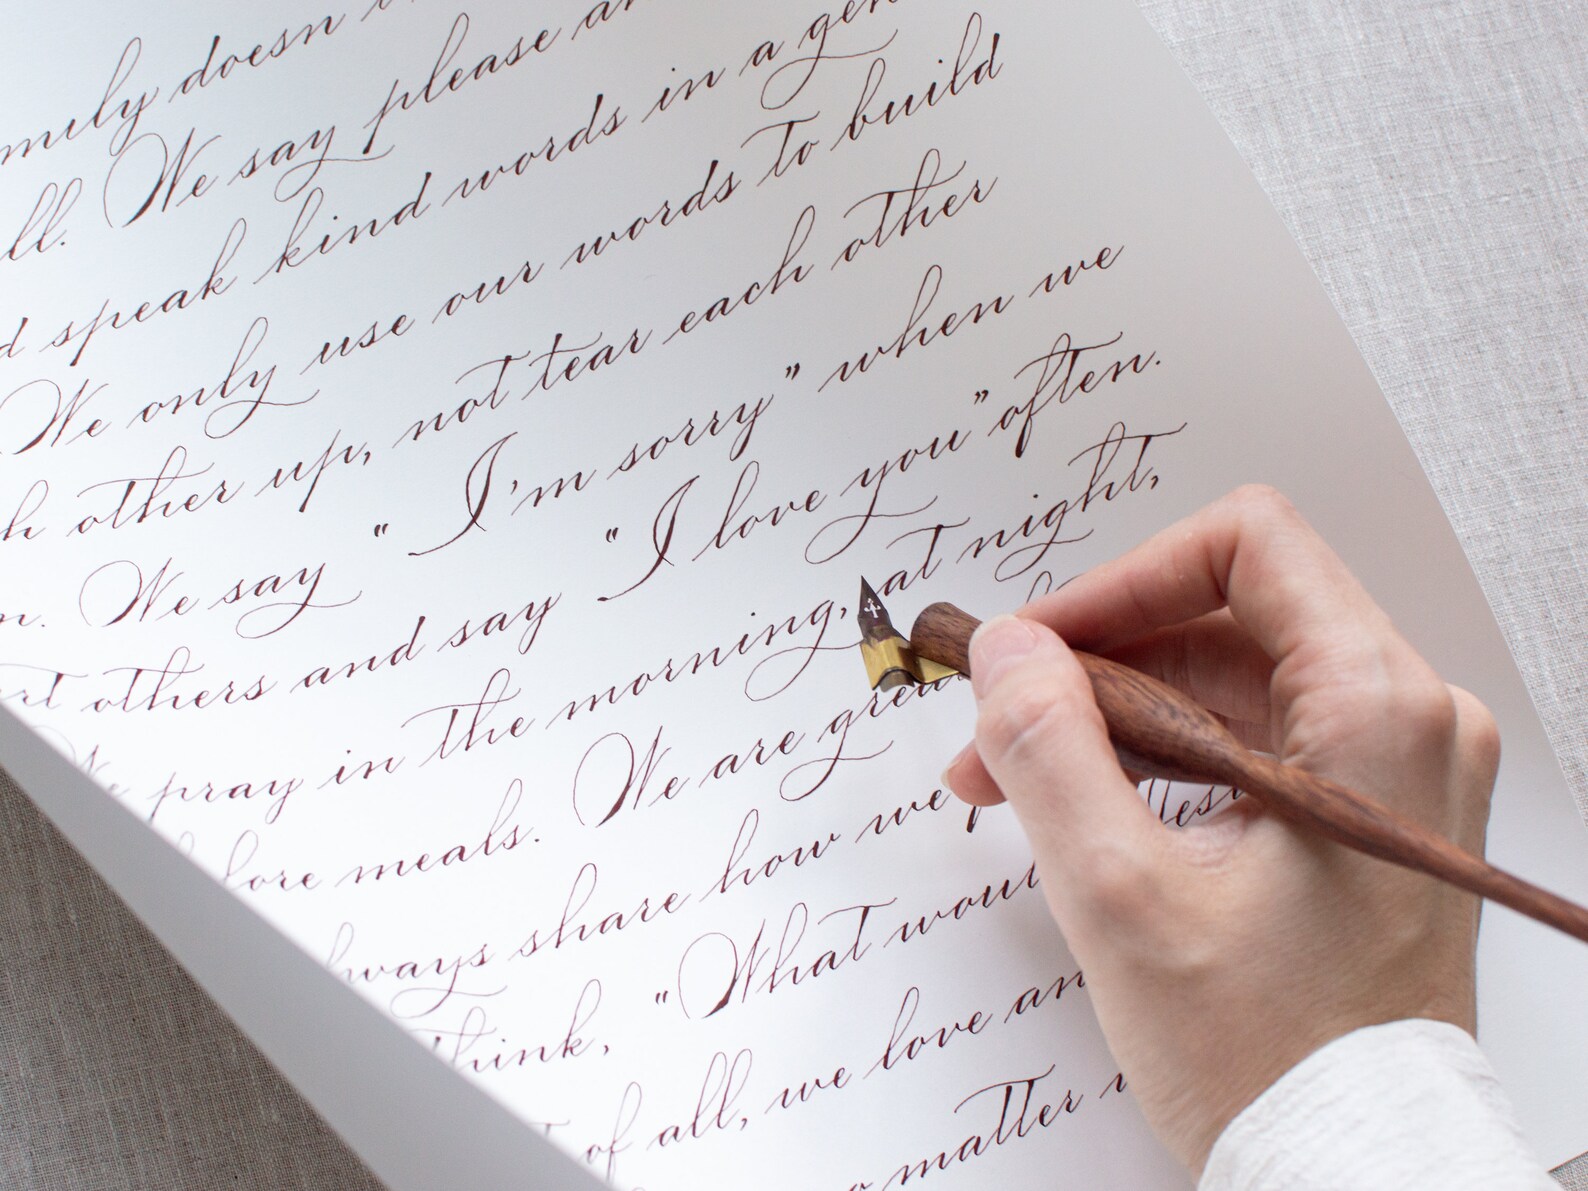 doesn
ll. We say please
speak kind words in a
We only use our words to build
other up, not tear each other
We say "I'm sorry" when we
others and say "I love you" often.
We pray in the morning, at night,
meals. We are
share how we
think, "What
of all, we love
matter